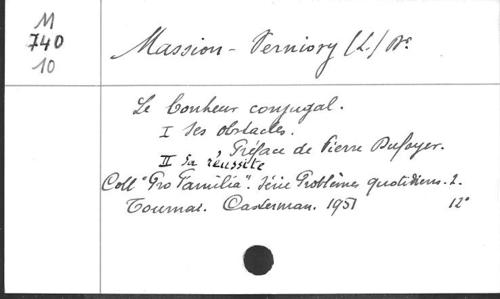 M
740
10
Massion-Verniory (L.) Dr.
Le bonheur conjugal.
I Ses obstacles.
, Préface de Pierre Dufoyer.
II Sa réussite
Coll "Pro Familia". Série Problèmes quotidiens. 2.
Tournai. Casterman. 1951 12°